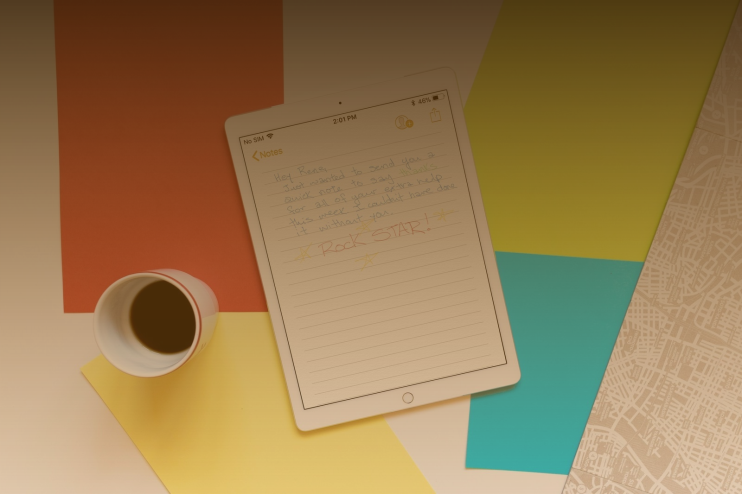 No SIM 2:01 PM 46%
Notes
Hey
Just wanted to send you a
quick note to say
for all of your extra help
this week I couldn't have done
it without you
ROCK STAR!